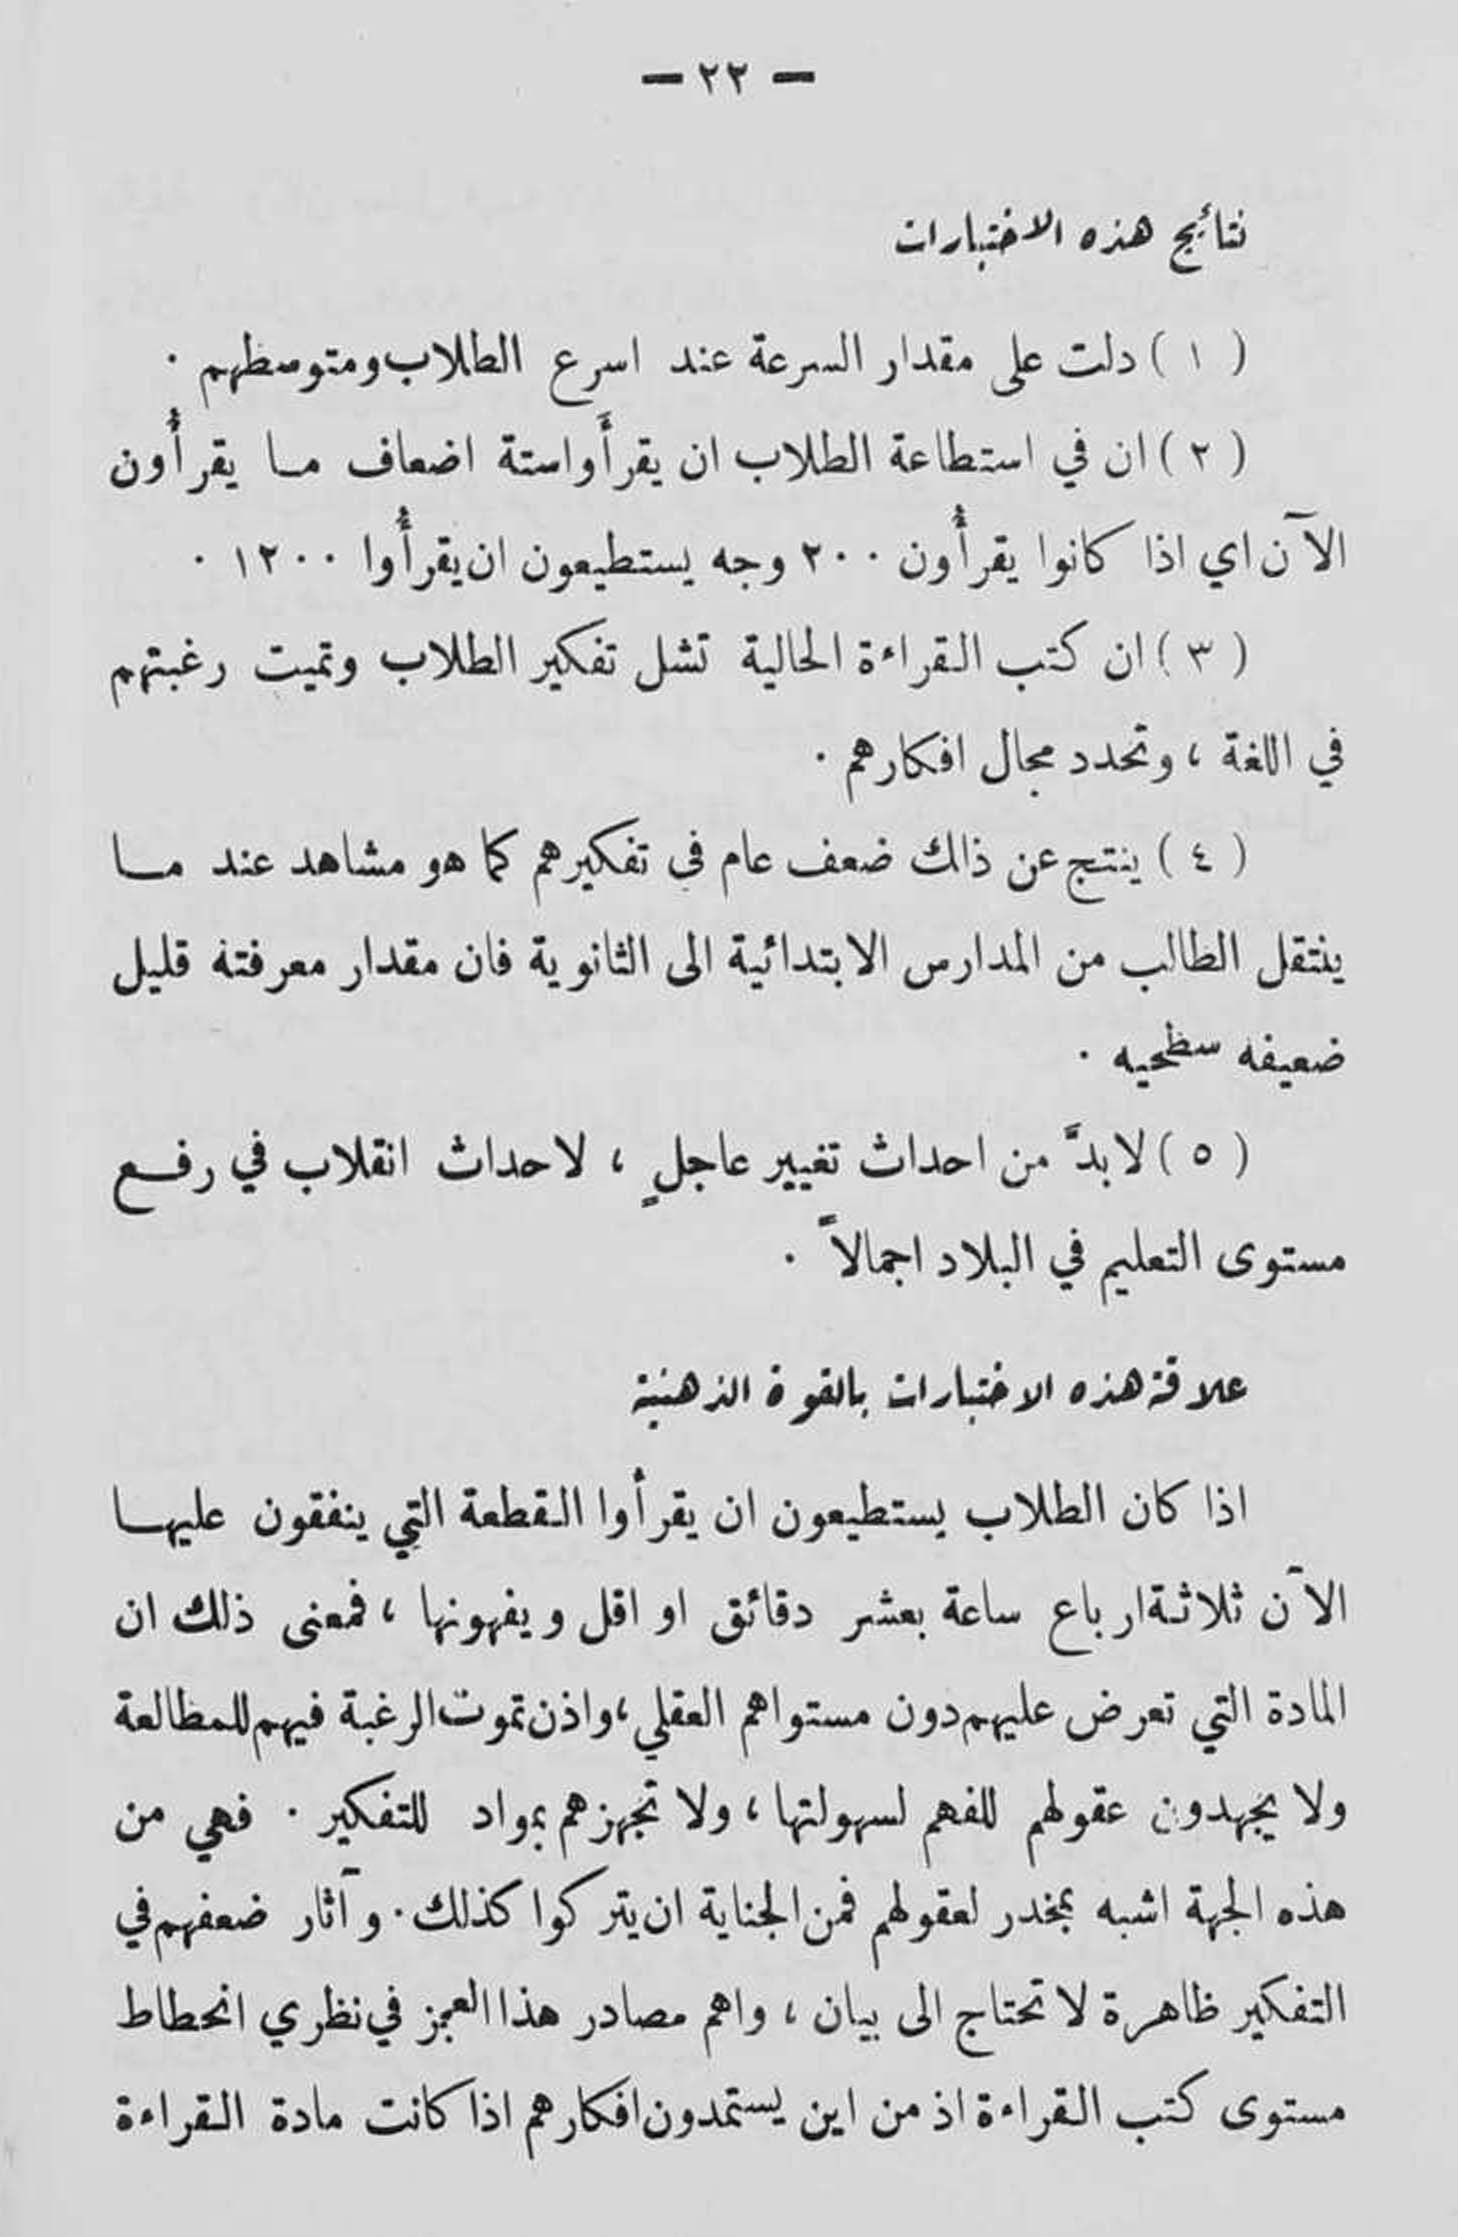 — ٢٢ —
نتائج هذه الاختبارات
( ١ ) دلت على مقدار السرعة عند اسرع الطلاب ومتوسطهم .
( ٢ ) ان في استطاعة الطلاب ان يقرأوا ستة اضعاف ما يقرأون
الآن اي اذا كانوا يقرأون ٢٠٠ وجه يستطيعون ان يقرأوا ١٢٠٠ .
( ٣ ) ان كتب القراءة الحالية تشل تفكير الطلاب وتميت رغبتهم
في اللغة ، وتحدد مجال افكارهم .
( ٤ ) ينتج عن ذالك ضعف عام في تفكيرهم كما هو مشاهد عند ما
ينتقل الطالب من المدارس الابتدائية الى الثانوية فان مقدار معرفته قليل
ضعيفه سطحيه .
( ٥ ) لا بدَّ من احداث تغيير عاجلٍ ، لاحداث انقلاب في رفع
مستوى التعليم في البلاد اجمالاً .
علاقة هذه الاختبارات بالقوة الذهنية
اذا كان الطلاب يستطيعون ان يقرأوا القطعة التي ينفقون عليها
الآن ثلاثة ارباع ساعة بعشر دقائق او اقل ويفهونها ، فمعنى ذلك ان
المادة التي تعرض عليهم دون مستواهم العقلي ، واذن تموت الرغبة فيهم للمطالعة
ولا يجهدون عقولهم للفهم لسهولتها ، ولا تجهزهم بمواد للتفكير . فهي من
هذه الجهة اشبه بمخدر لعقولهم فمن الجناية ان يتركوا كذلك . وآثار ضعفهم في
التفكير ظاهرة لا تحتاج الى بيان ، واهم مصادر هذا العجز في نظري انحطاط
مستوى كتب القراءة اذ من اين يستمدون افكارهم اذا كانت مادة القراءة